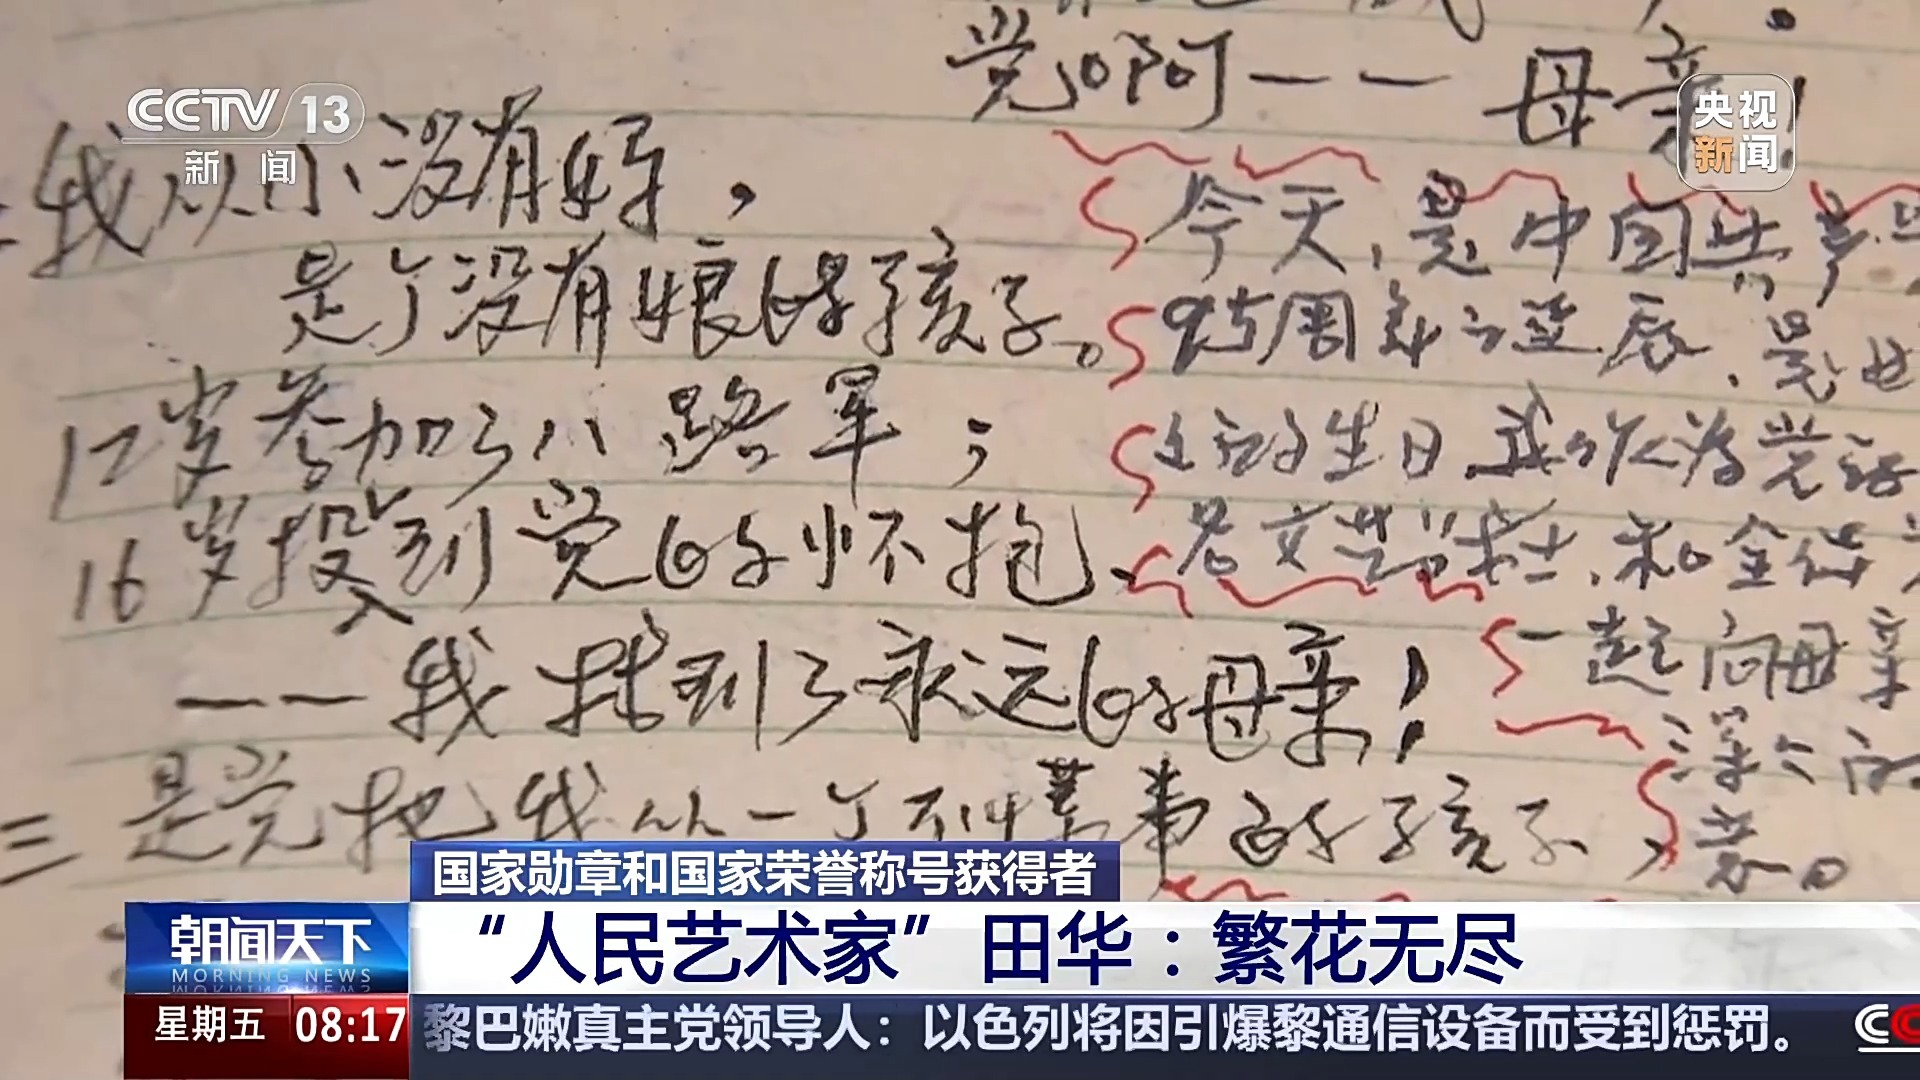 党啊——母亲!
CCTV 13
新闻
央视
新闻
我从小没有妈，
是个没有娘的孩子。
12岁参加了八路军；
16岁投到党的怀抱、
入
——我找到了永远的母亲!
三 是党把我从一个不懂事的孩子，
今天，是中国共产
95周年之诞辰，是
的生日，我作为党
名文艺战士，和全体
一起向母亲
深深的
意。
国家勋章和国家荣誉称号获得者
“人民艺术家”田华：繁花无尽
朝闻天下
MORNING NEWS
星期五 08:17
黎巴嫩真主党领导人：以色列将因引爆黎通信设备而受到惩罚。